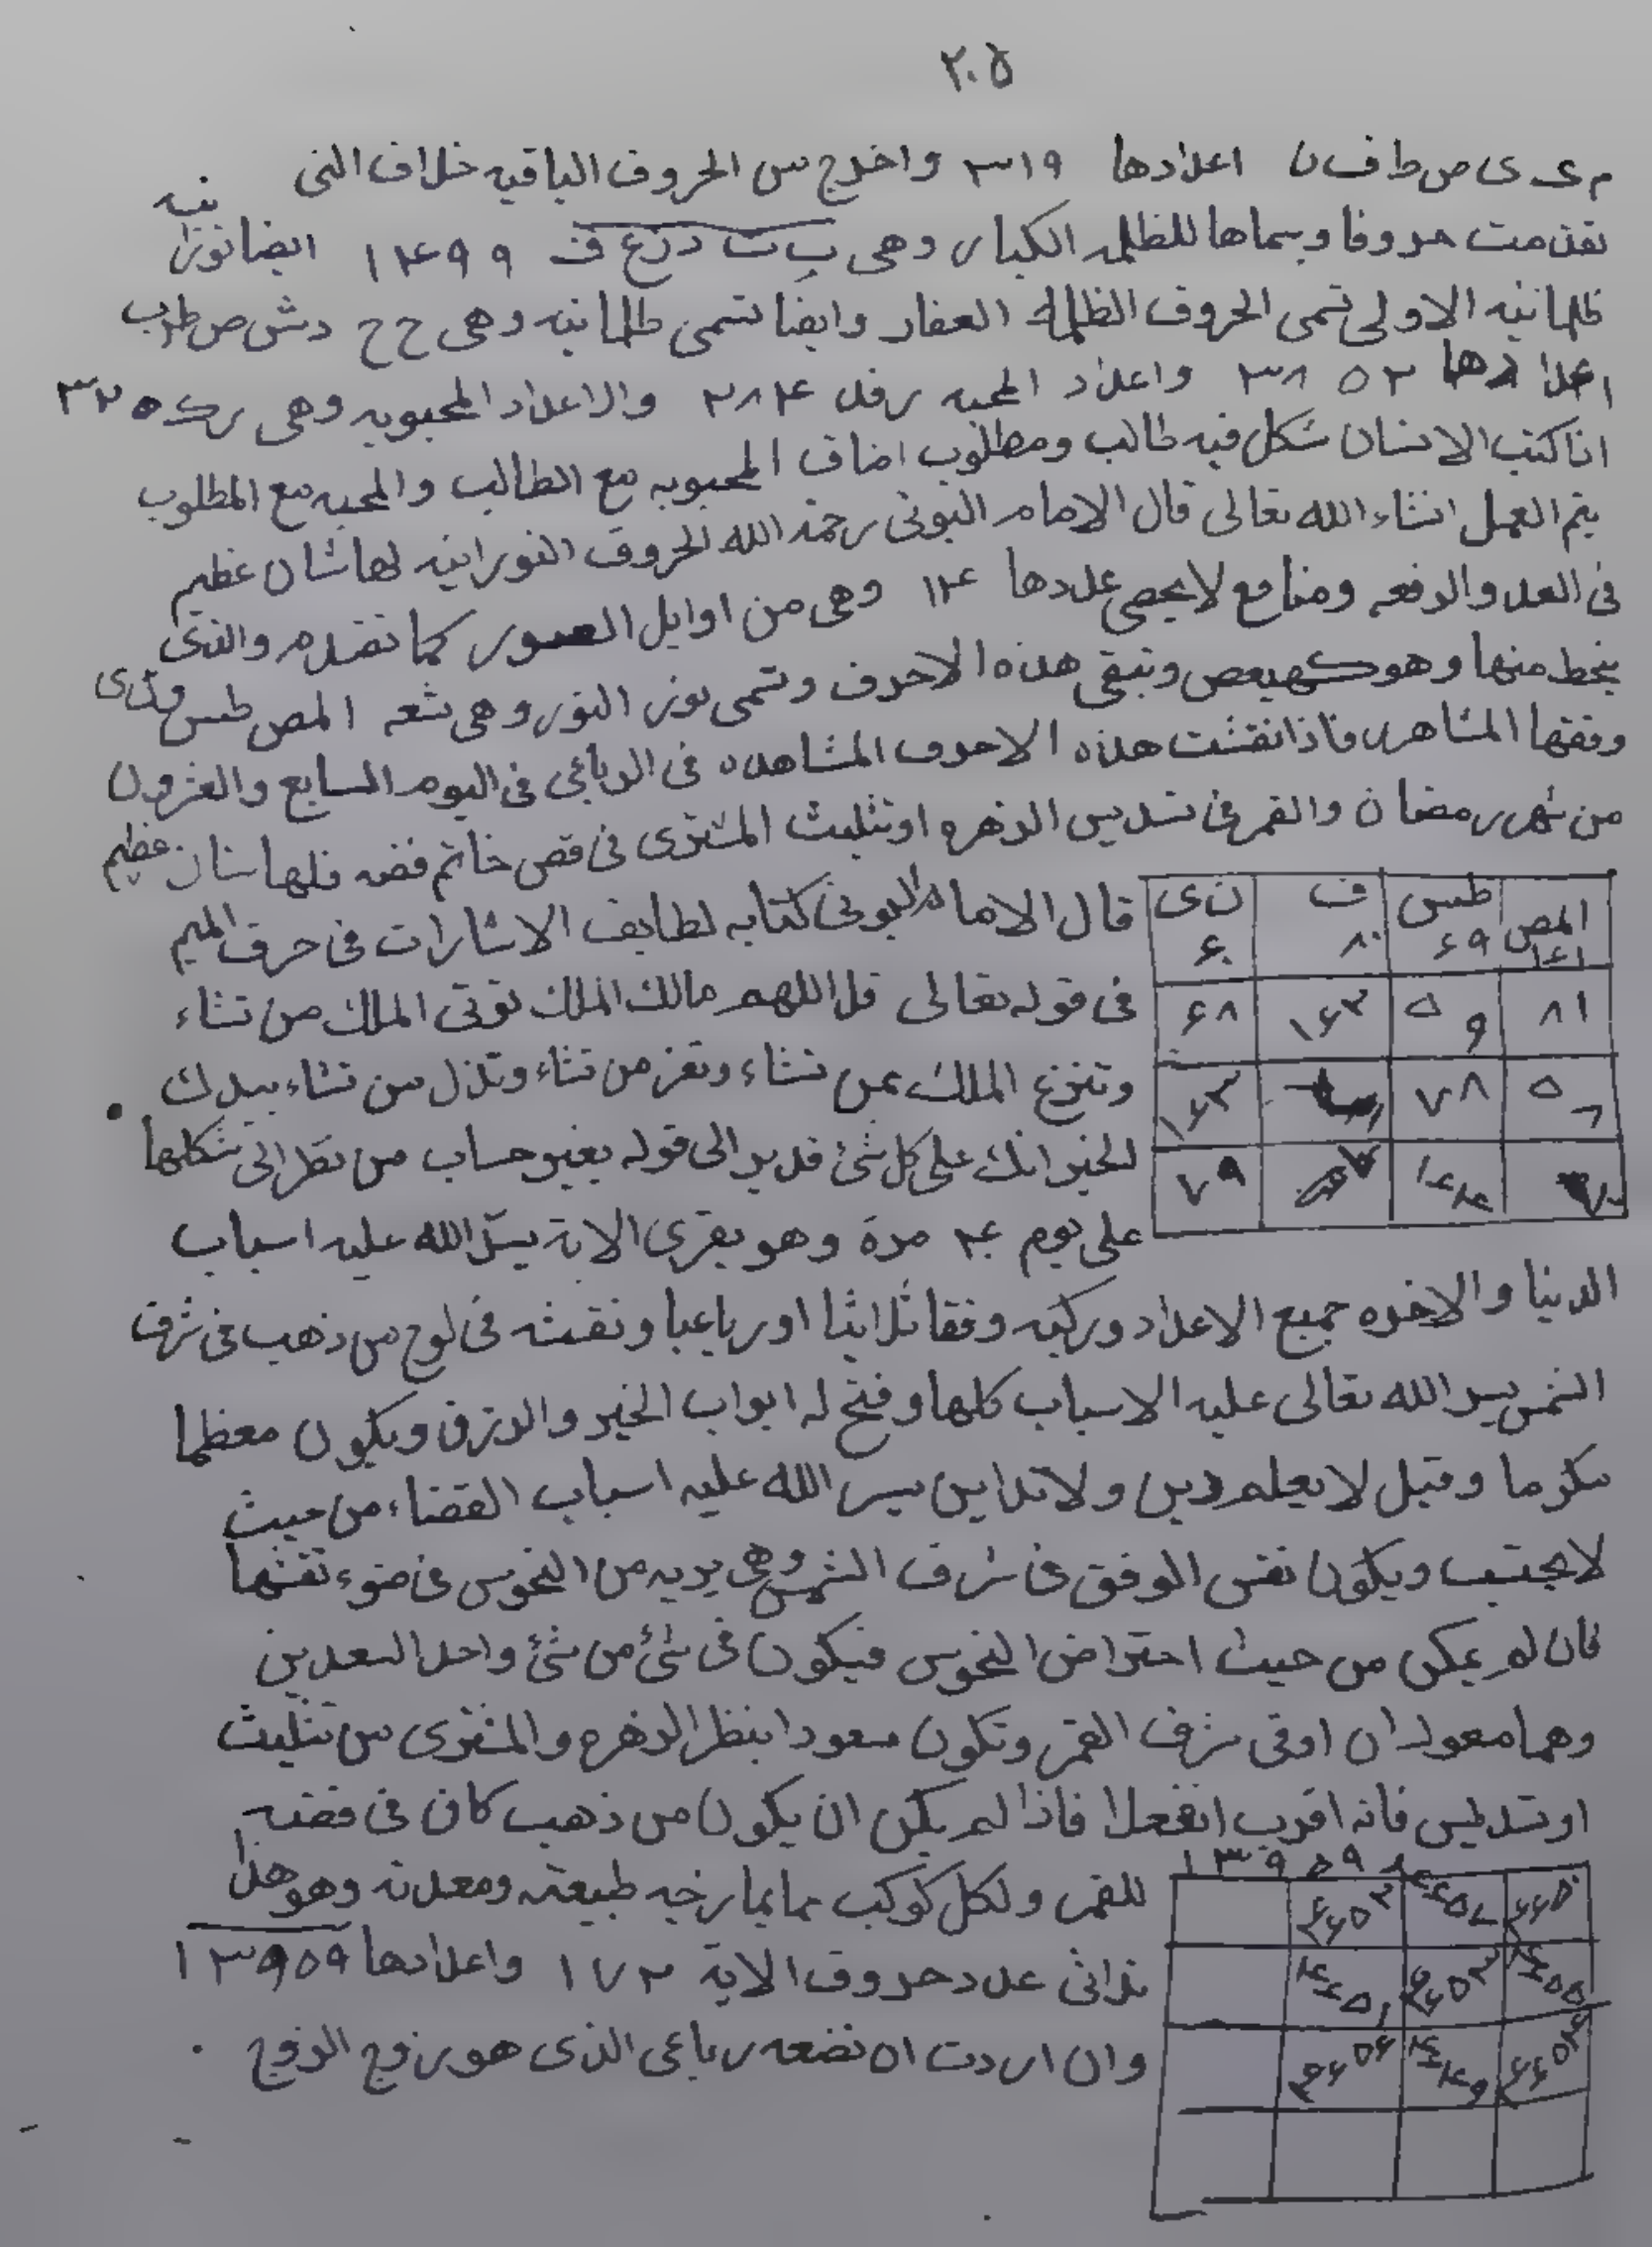 ٢٠٥
م ى ى ص ط ا ف ن اعدادها ٣١٩ واخرج من الحروف الباقيه خلاف التى
تقدمت حروفا وسماها للظلمه الكبار وهى ب ت د ز ع ف ١٤٩٩ ايضا نورانيه
ظلمانيه الاولى تسمى الحروف الظلمانه الصغار وايضا تسمى ظلمانيه وهى ح ح د ش ص ط ب
اعدادها ٣٨٥٢ واعداد المحبه رفد ٢٨٤ والاعداد المحبوبه وهى رك ٣٢٥
اذا كتب الانسان شكل فيه طالب ومطلوب اضاف المحبوبه مع الطالب والمحبه مع المطلوب
يتم العمل انشاء الله تعالى قال الامام البونى رحمة الله الحروف النورانيه لها شان عظيم
فى العد والرفعه ومنافع لا يحصى عددها ١٤ وهى من اوايل السور كما تقدم والذى
يخط منها وهو كهيعص وتبقى هذه الاحرف وتسمى نور النور وهى تسعه المص طس
وفقها المشاهره فاذا نقشت هذه الاحرف المشاهده فى الرباعى فى اليوم السابع والعشرون
من شهر رمضان والقمر فى تسديس الزهره او تثليث المشترى فى فص خاتم فضه فلها شان عظيم
المص ١٦١ طس ٦٩ ف ٨٠ ن ى ٦٠
٨١ ٥٩ ١٦٢ ٦٨
٧٨ ١٦٣
٧٩
قال الامام البونى كتابه لطايف الاشارات فى حرف الميم
فى قوله تعالى قل اللهم مالك الملك توتى الملك من تشاء
وتنزع الملك عمن تشاء وتعز من تشاء وتذل من تشاء بيدك
الخير انك على كل شئ قدير الى قوله بغير حساب من نظر الى شكلها
على يوم ٤٠ مرة وهو يقرى الاية يسر الله عليه اسباب
الدنيا والاخره جميع الاعداد وركبه وفقا ثلاثيا او رباعيا ونقشه فى لوح من ذهب فى شرف
الشمس يسر الله تعالى عليه الاسباب كلها وفتح له ابواب الخير والرزق ويكون معظما
مكرما وقيل لا يعلم دين ولا تداين يسر الله عليه اسباب القضاء من حيث
لا يحتسب ويكون نقش الوفق فى شرف الشمس وهى بريه من النحوس فى ضوء نقشها
فان لم يمكن من حيث احتراض النحوس فيكون فى شئ من شئ واحد السعدين
وهما سعودان او فى شرف القمر وتكون سعودا بنظر الزهره والمشترى من تثليث
او تسديس فانه اقرب انفعلا فاذا لم يكن ان يكون من ذهب كان فى فضه
١٣٩٥٩
للقمر ولكل كوكب مما يمازجه طبيعته ومعدنه وهو هذا
ثلاثى عدد حروف الاية ١٧٢ واعدادها ١٣٩٥٩
وان اردت ان تضعه رباعى الذى هو زوج الزوج